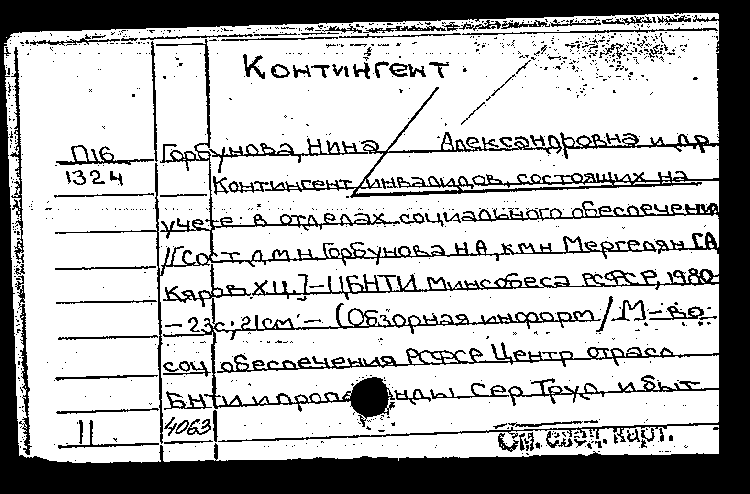 Контингент.
П16 Горбунова, Нина Александровна и др.
1324 Контингент инвалидов, состоящих на
учете в отделах социального обеспечения
// Сост. д.м.н Горбунова Н.А, к.м.н Мергелян ГА
ЦБНТИ Минсобеса РСФСР, 1980
– 23с; 21см – (Обзорная информ / М-во
соц обеспечения РСФСР Центр отрасл
БНТИ и Сер Труд, и быт
11 4063 См. след. карт.